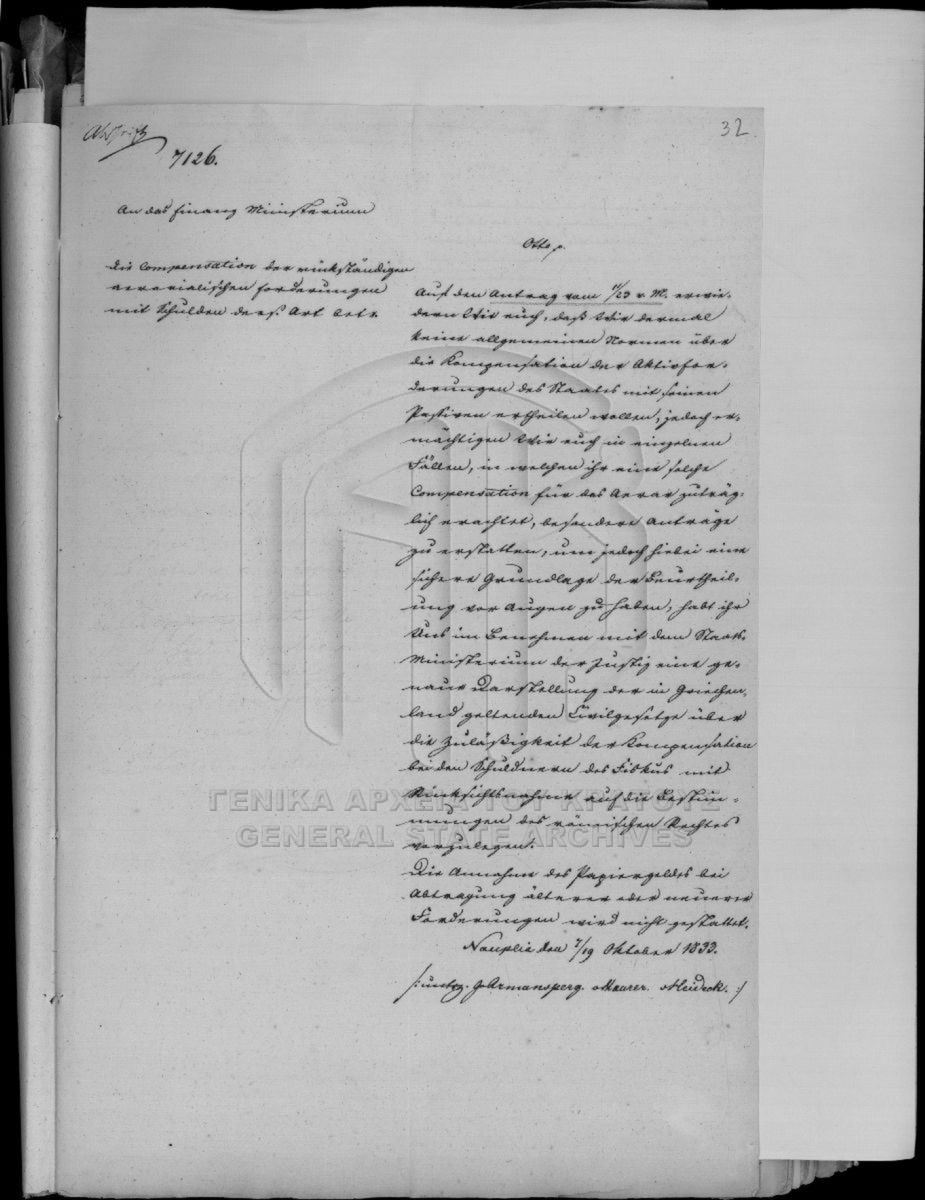 Abschrift
32
7126.
An das Finanz Ministerium
Otto p.
die Compensation der rückständigen
aerarialischen Forderungen
mit Schulden ders. Art betr.
Auf den Antrag vom 11/23 v. M. erwie-
dern Wir euch, daß Wir dermal
keine allgemeinen Normen über
die Kompensation der Aktivfor-
derungen des Staates mit seinen
Passiven ertheilen wollen, jedoch er-
mächtigen Wir euch in einzelnen
Fällen, in welchen ihr eine solche
Compensation für das Aerar zuträg-
lich erachtet, besondere Anträge
zu erstatten, um jedoch hiebei eine
sichere Grundlage der Beurtheil-
ung vor Augen zu haben, habt ihr
Uns im Benehmen mit dem Staats-
Ministerium der Justiz eine ge-
naue Darstellung der in Griechen-
land geltenden Civilgesetze über
die Zuläßigkeit der Kompensation
bei den Schuldnern des Fiskus mit
Rücksichtsnahme auf die Bestim-
mungen des römischen Rechtes
vorzulegen.
Die Annahme des Papiergeldes bei
Abtragung älterer oder neuerer
Forderungen wird nicht gestattet.
Nauplie den 7/19 Oktober 1833.
/: untrz. Gr Armansperg. Maurer. Heideck. :/
ΓΕΝΙΚΑ ΑΡΧΕΙΑ ΤΟΥ ΚΡΑΤΟΥΣ
GENERAL STATE ARCHIVES